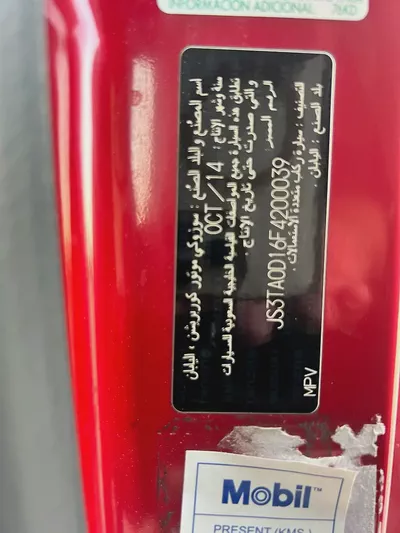 INFORMACIÓN ADICIONAL 76KD
اسم المصنع و البلد الصنع : سوزوكي موتور كوربريشن ، اليابان
سنة وشهر الإنتاج : OCT / 14
تطابق هذه السيارة جميع المواصفات القياسية الخليجية السعودية للسيارات
و التي صدرت حتى تاريخ الإنتاج .
الرسم المميز : JS3TA0D16F4200039
التصنيف : سيارة ركب متعددة الاستعمالات .
بلد الصنع : اليابان
MPV
Mobil™
PRESENT (KMS.)